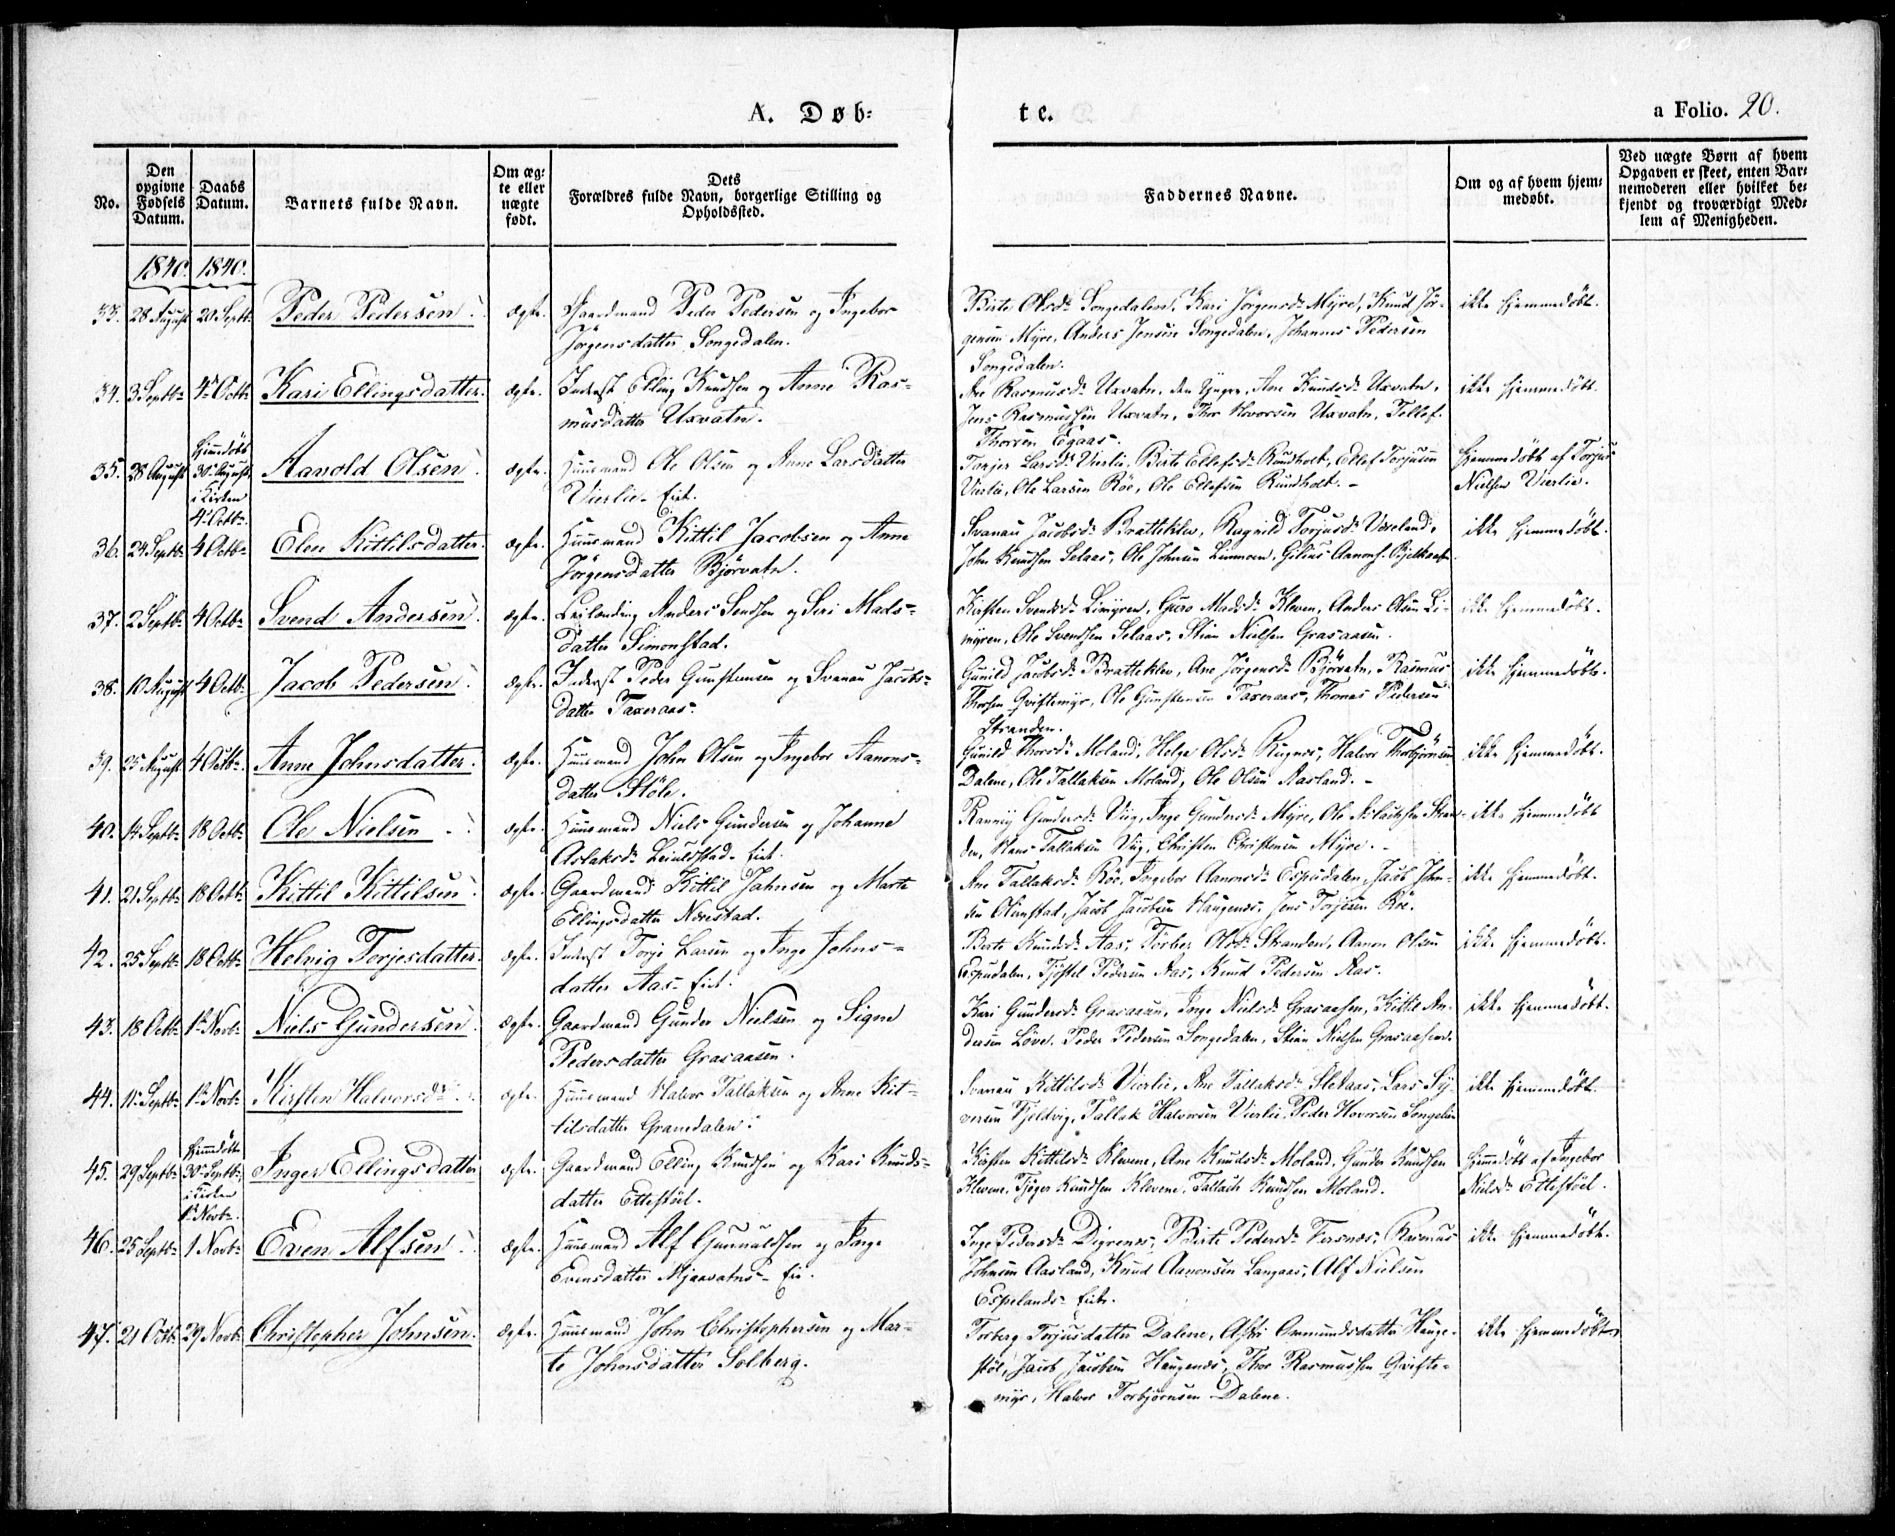 A. Døb=
te.
a Folio. 20.
No.
Den opgivne Fødsels Datum.
Daabs Datum.
Barnets fulde Navn.
Om æg= te eller uægte født.
Dets Forældres fulde Navn, borgerlige Stilling og Opholdssted.
Faddernes Navne.
Om og af hvem hjem= medøbt.
Ved uægte Børn af hvem Opgaven er skeet, enten Bar= nemoderen eller hvilket be= kjendt og troværdigt Med= lem af Menigheden.
1840. 1840.
33. 28 August 20 Septb. Peder Pedersen. ægte. Gaardmand Peder Pedersen og Ingebor
Jørgensdatter Songedalen.
Birte Olsd. Songedalen, Kari Jørgensd. Myre, Knud Jør-
gensen Myre, Anders Jensen Songedalen, Johannes Pedersen
Songedalen.
ikke hjemmedøbt.
34. 3 Septb. 4 Octb. Kari Ellingsdatter. ægte. Inderst Elling Knudsen og Anne Ras-
musdatter Uxvatn.
Ane Rasmusd. Uxvatn, den Yngre, Ane Knudsd. Uxvatn,
Jens Rasmussen Uxvatn, Thor Hvorsen Uxvatn, Tellef
Thorsen Egaas.
ikke hjemmedøbt.
35. 28 August Hjemdøbt 30 August, i Kirken 4 Octb. Aavold Olsen. ægte. Huusmand Ole Olsen og Anne Larsdatter
Vierlie- Eiet.
Tonjer Larsd. Vierlie, Birte Ellefsd. Rundholt, Ellef Torjusen
Vierlie, Ole Larsen Röe, Ole Ellefsen Rundholt. -
hjemmedøbt af Torjus
Nielsen Vierlie.
36. 24 Septb. 4 Octb. Elen Kittilsdatter. ægte. Huusmand Kittil Jacobsen og Anne
Jörgensdatter Björvatn.
Svanau Jacobsd. Bratteklev, Ragnild Torjusd. Veseland,
John Knudsen Selaas, Ole Johnsen Limoen, Gelius Aanons.
ikke hjemmedøbt.
37. 2 Septb. 4 Octb. Svend Andersen. ægte. Leilending Anders Sendsen og Siri Mads-
datter Simonstad.
Kirsten Svendsd. Limyren, Guro Madsd. Kleven, Anders Olsen Li-
myren, Ole Svendsen Selaas, Stian Nielsen Grasaasen.
ikke hjemmedøbt.
38. 10 August 4 Octb. Jacob Pedersen. ægte. Inderst Peder Gunstensen og Svanau Jacobs-
datter Taxeraas.
Gunild Jacobsd. Bratteklev, Ane Jörgensd. Björvatn, Rasmus
Thorsen Qviftemyr, Ole Gunstensen Taxeraas, Thomas Pedersen
Stranden.
ikke hjemmedøbt.
39. 25 August 4 Octb. Anne Johnsdatter. ægte. Huusmand John Olsen og Ingebor Aanons-
datter Støle.
Gunild Thorsd. Moland, Helge Olsd. Rugnes, Halvor Thorbjörnsen
Dalene, Ole Tallaksen Moland, Ole Olsen Aasland. -
ikke hjemmedøbt.
40. 14 Septb. 18 Octb. Ole Nielsen. ægte. Huusmand Niels Gundersen og Johanne
Aslaksd. Leiuldstad- Eiet.
Ranvig Gundersd. Viig, Inge Gundersd. Myre, Ole Aslaksen Stran-
den, Hans Tallaksen Viig, Christen Christensen Myre. -
ikke hjemmedøbt
41. 21 Septb. 18 Octb. Kittil Kittilsen. ægte. Gaardmand Kittil Jahnsen og Marte
Ellingsdatter Nævestad.
Ane Tallaksd. Röe, Ingebor Aanonsd. Espedalen, Jacob John-
sen Olimstad, Jacob Jacobsen Haugenes, Jens Torjesen Röe.
ikke hjemmedøbt.
42. 25 Septb. 18 Octb. Helvig Torjesdatter. ægte. Inderst Torje Larsen og Inge Johns-
datter Aas- Eiet.
Birte Knudsd. Aas, Torber Olsd. Stranden, Aanon Olsen
Espedalen, Tjöstel Pedersen Aas, Knud Pedersen Aas.
ikke hjemmedøbt.
43. 18 Octb. 1 Novb. Niels Gundersen. ægte. Gaardmand Gunder Nielsen og Signe
Pedersdatter Grasaasen.
Kari Gundersd. Grasaasen, Inge Nielsd. Grasaasen, Kittil An-
dersen Löve, Peder Pedersen Songedalen, Stian Nielsen Grasaasen.
ikke hjemmedøbt.
44. 11 Septb. 1 Novb. Kirsten Halvorsd. ægte. Huusmand Halvor Tallaksen og Anne Kit-
tilsdatter Granedalen.
Svanau Kittilsd. Vierlie, Ane Tallaksd. Sletaas, Lars Sy-
versen Fjeldvig, Tallak Halvorsen Vierlie, Peder Hvorsen Songedalen
ikke hjemmedøbt.
45. 29 Septb. Hjemdøbt 30 Septb., i Kirken 1 Novb. Inger Ellingsdatter ægte. Gaardmand Elling Knudsen og Kari Knuds-
datter Ettestöel.
Kirsten Kittilsd. Klevene, Ane Knudsd. Moland, Gunder Knudsen
Klevene, Tjöger Knudsen Klevene, Tallak Knudsen Moland.
hjemdøbt af Ingebor
Nielsd. Ettestöel.
46. 25 Septb. 1 Novb. Even Alfsen. ægte. Huusmand Alf Gunnuldsen og Inge
Evensdatter Mjaavatns- Eie.
Inge Pedersd. Digrenes, Birte Pedersd. Versnes, Rasmus
Johnsen Aasland, Knud Aanonsen Langaas, Alf Nielsen
Espelands- Eiet.
ikke hjemmedøbt.
47. 21 Octb. 29 Novb. Christopher Johnsen. ægte. Huusmand John Christophersen og Mar-
te Johnsdatter Solberg.
Torberg Torjusdatter Dalene, Astri Omundsdatter Hauge-
støl, Jacob Jacobsen Haugenes, Thor Rasmussen Qvifte-
myr, Halvor Torbjörnsen Dalene.
ikke hjemmedøbt